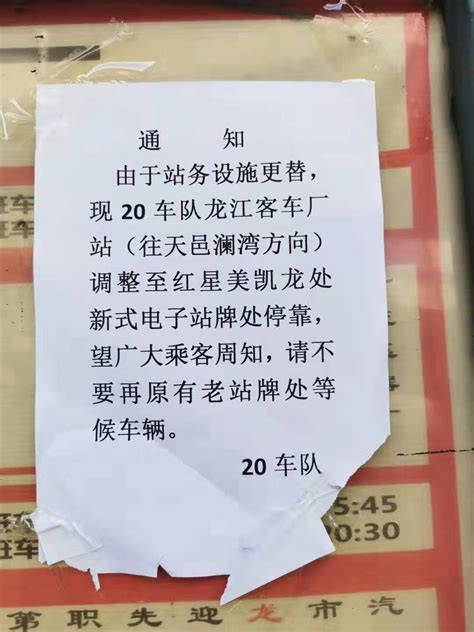 通 知
由于站务设施更替，
现 20 车队龙江客车厂
站（往天邑澜湾方向）
调整至红星美凯龙处
新式电子站牌处停靠，
望广大乘客周知，请不
要再原有老站牌处等
候车辆。
20 车队
班车
班车
班车
5:45
班车
0:30
第 职 先 迎 龙 市 汽